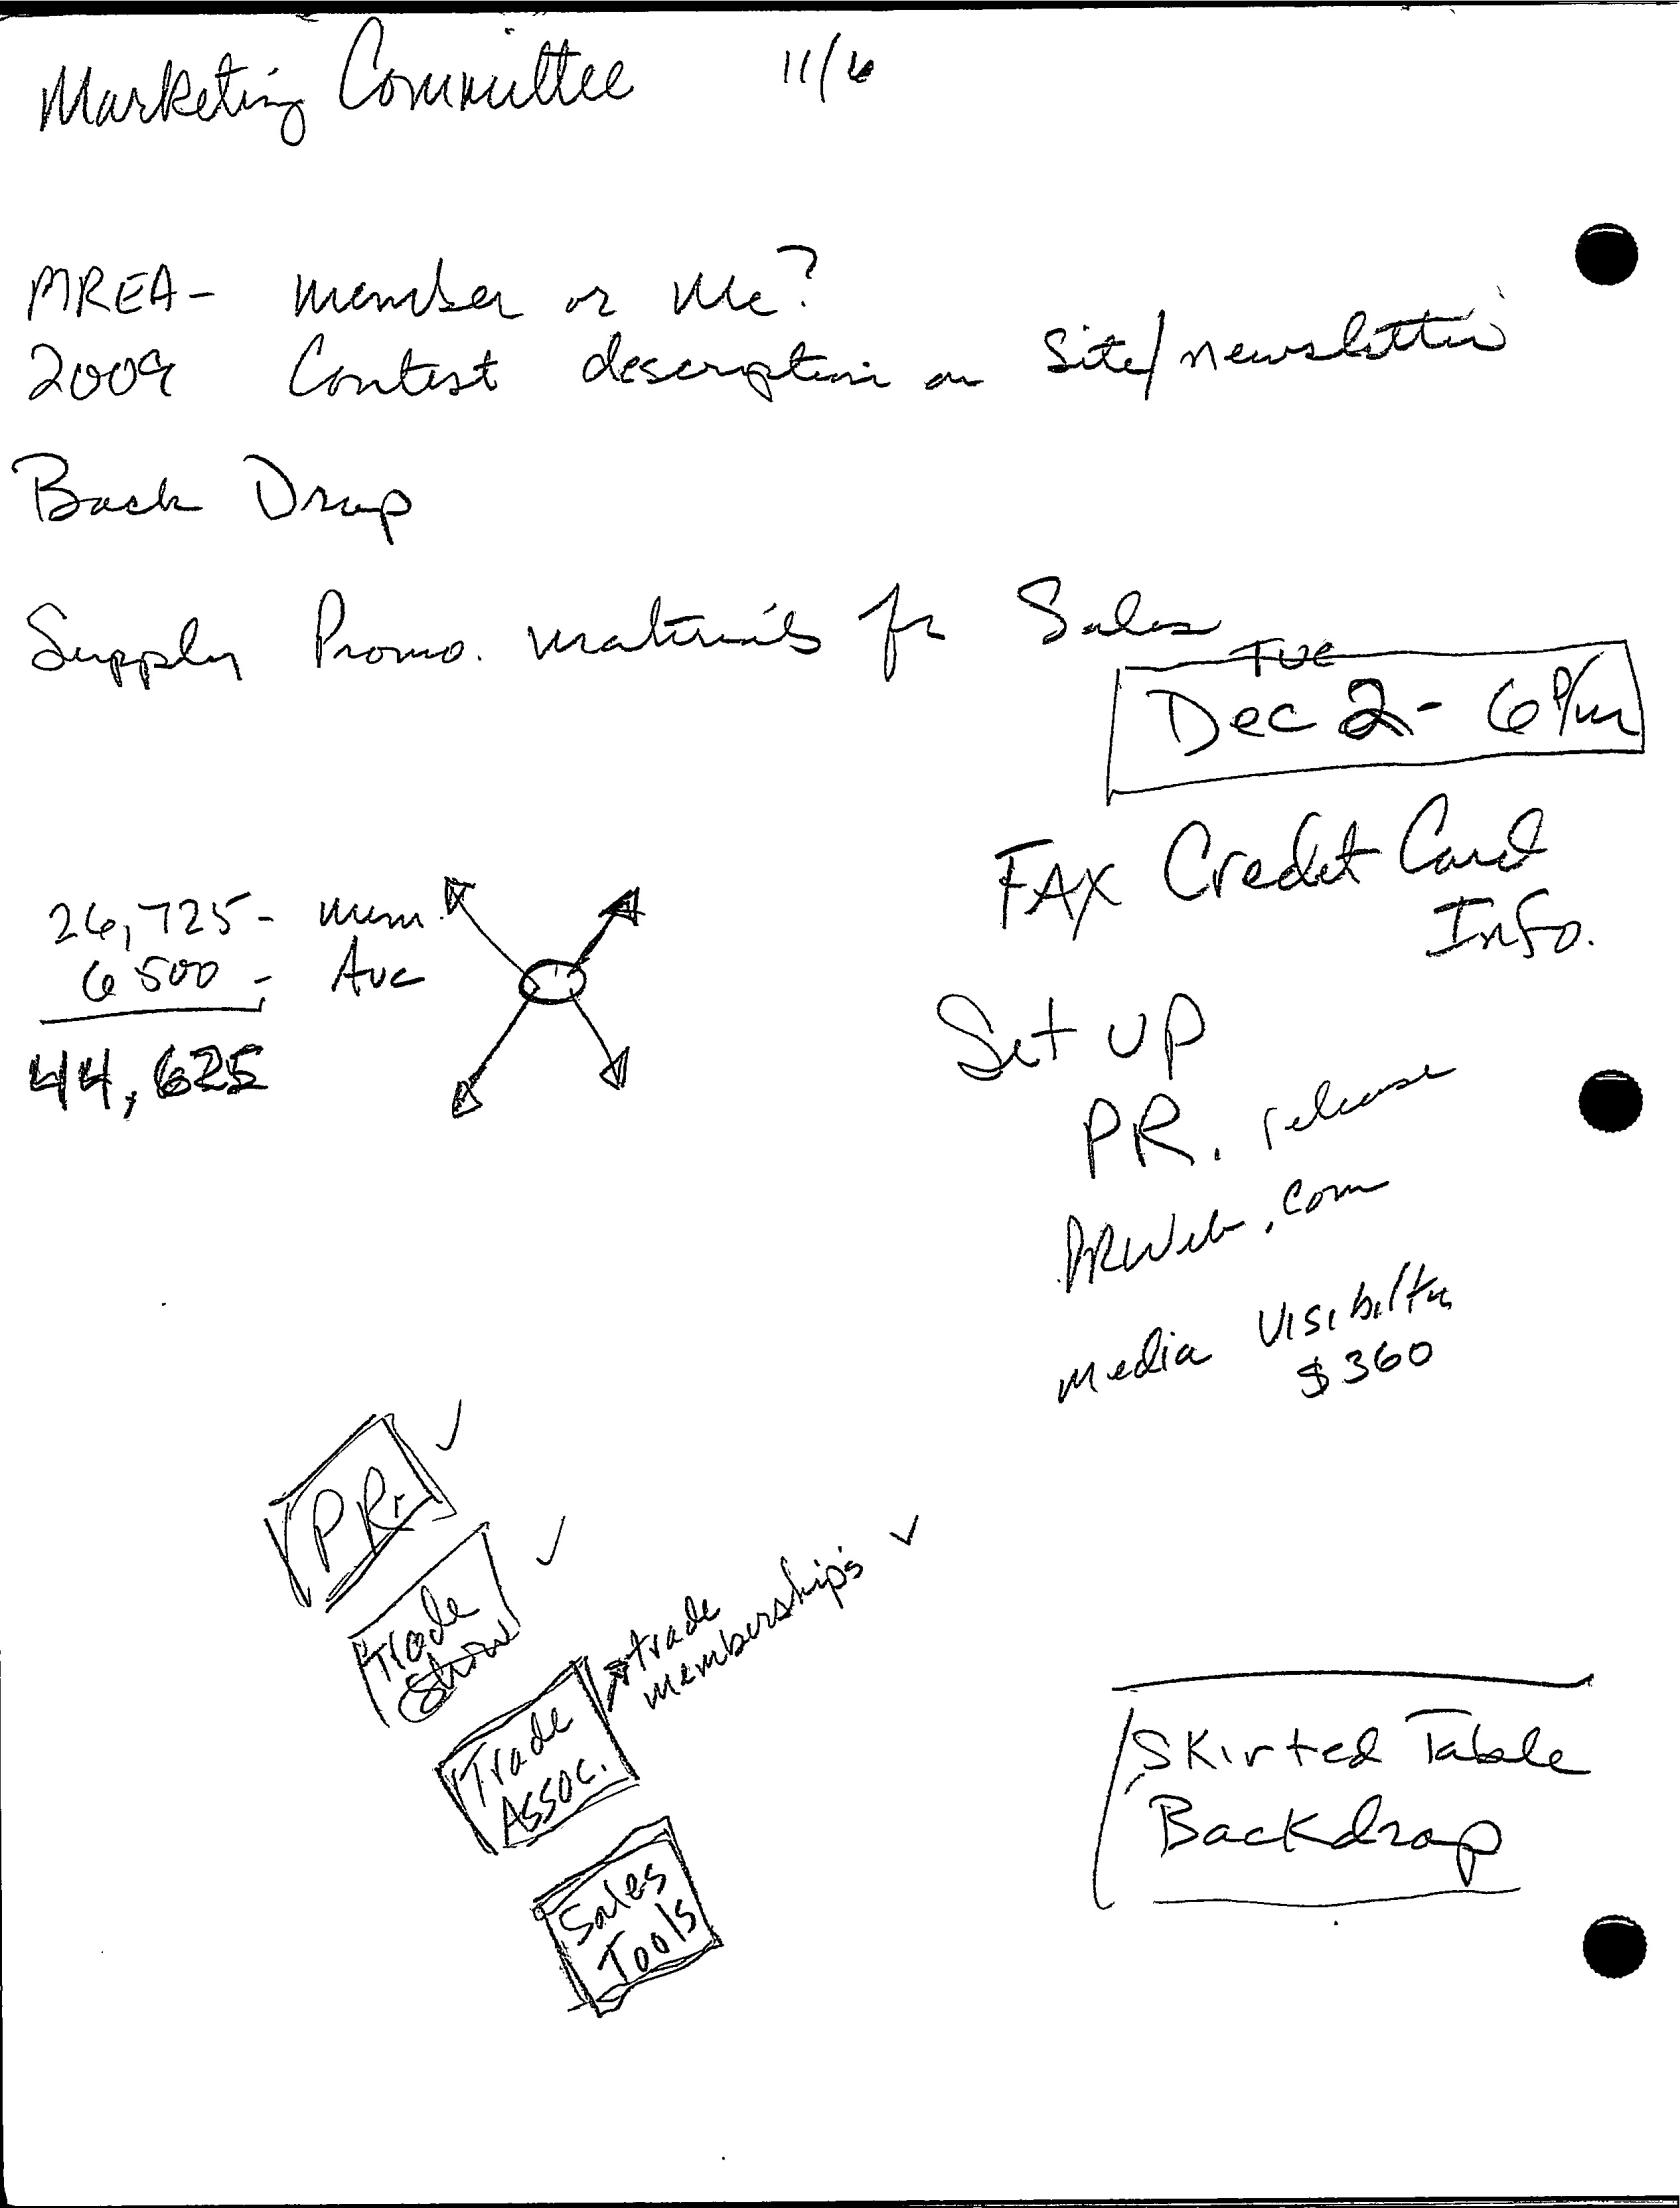 Marketing Committee 11/6
MREA- member or Me?
2009 Contest description on Site/newsletter
Back Drop
Supply Promo. materials for Sales
TUE
Dec 2 - 6 P/m
FAX Credit Card
Info.
26,725 - mem.
6500 - Ave
44,625
Set up
PR. release
PRWeb.com
media Visibilty
$360
PR.
Trade
Show
Trade
Assoc.
trade
memberships
Sales
Tools
Skirted Table
Backdrop